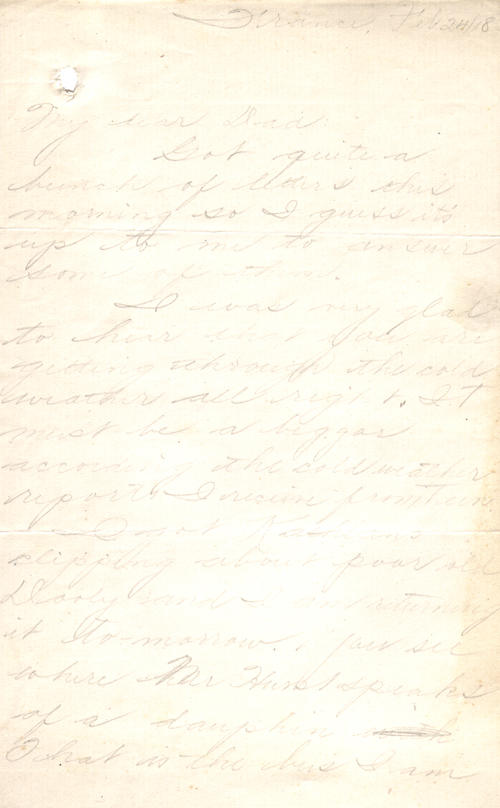 France, Feb 24/18
My dear Dad:
Got quite a
bunch of letters this
morning so I guess it's
up to me to answer
some of them.
I was very glad
to hear that you are
getting through the cold
weather all right. It
must be a biggar
according the cold weather
reports I receive from
I got
clipping about poor old
and I am returning
it to-morrow. You see
where Mr Hunt speaks
of a dauphin
That is the bus I am